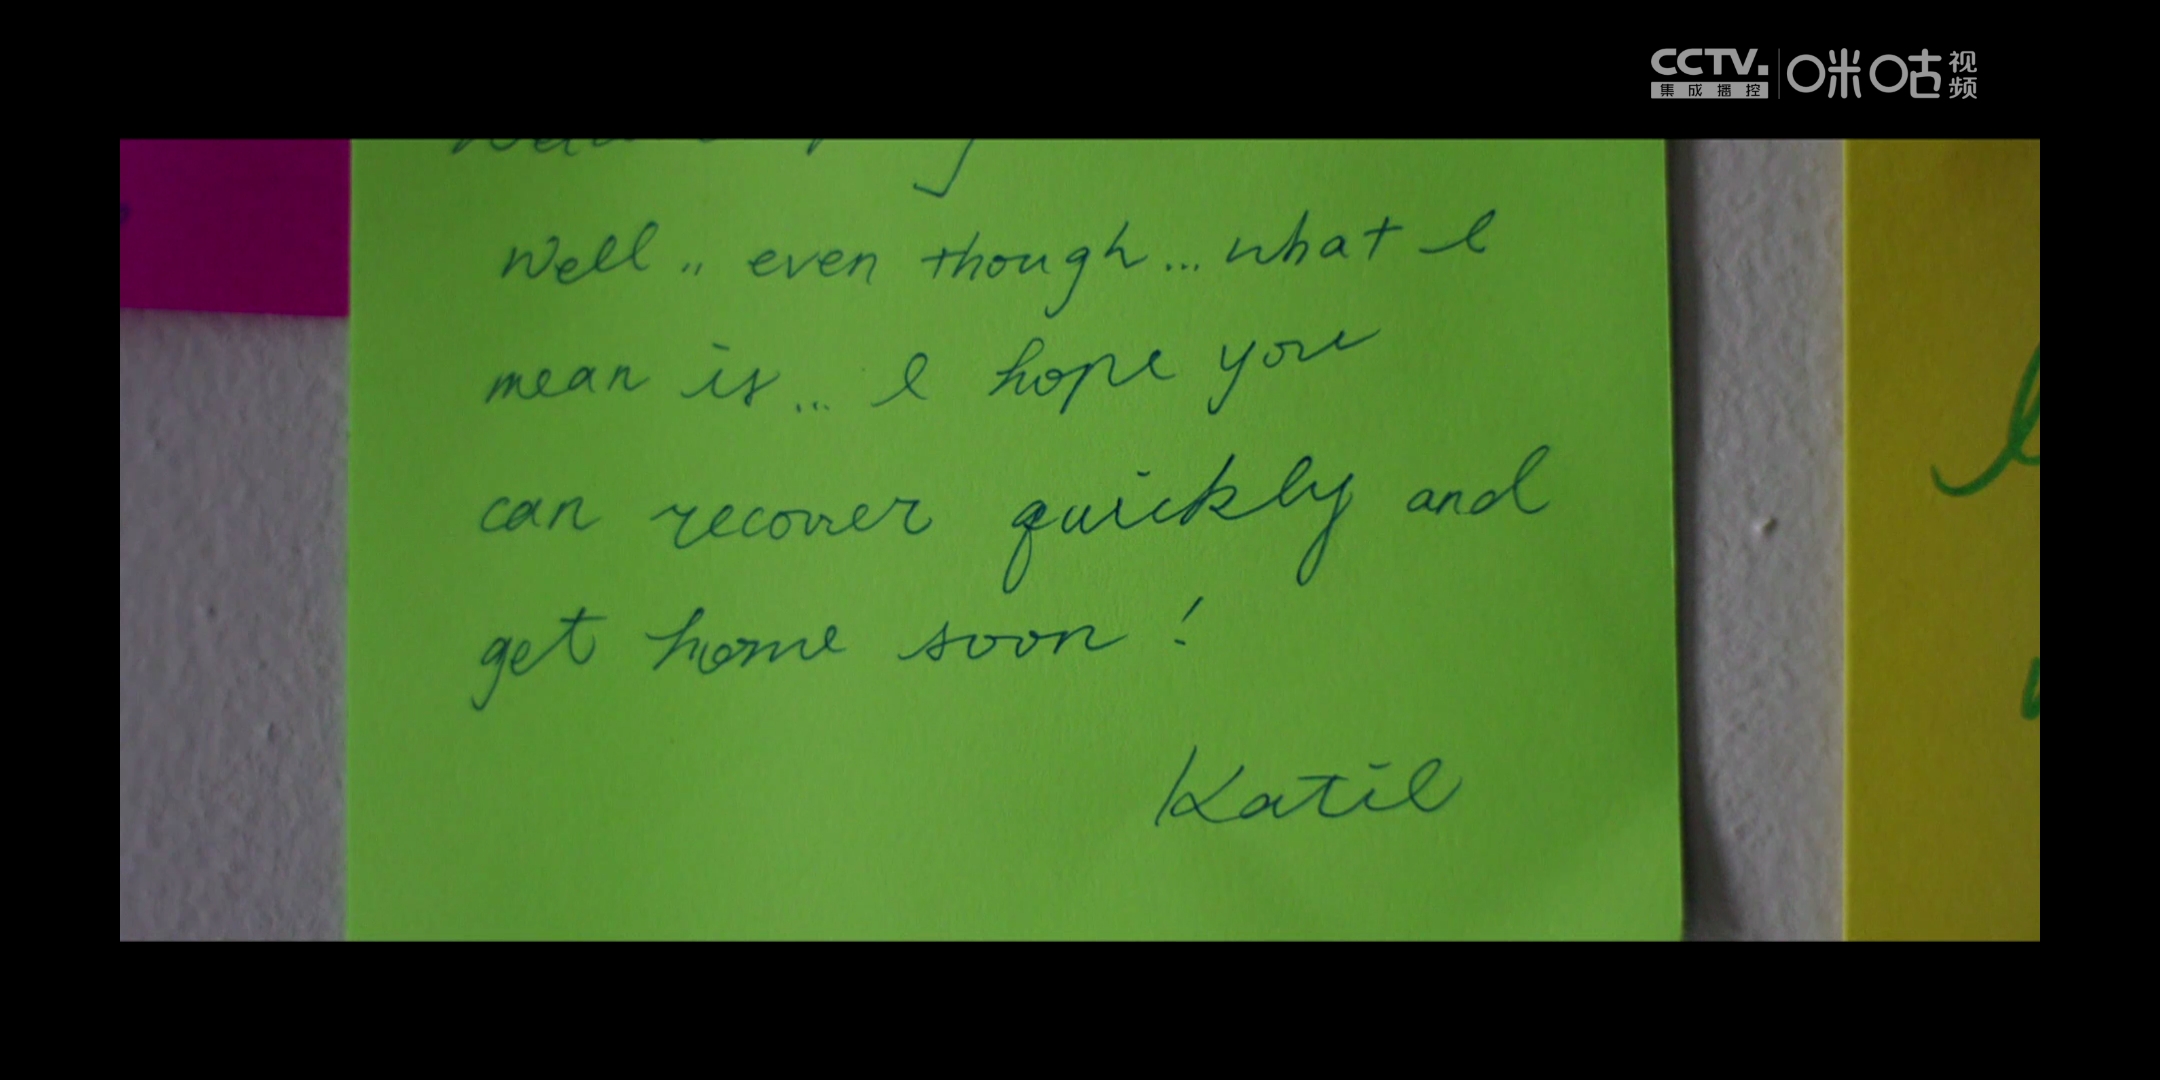 CCTV.
集成播控
咪咕视频
Well.. even though... what I
mean is... I hope you
can recover quickly and
get home soon!
Katie